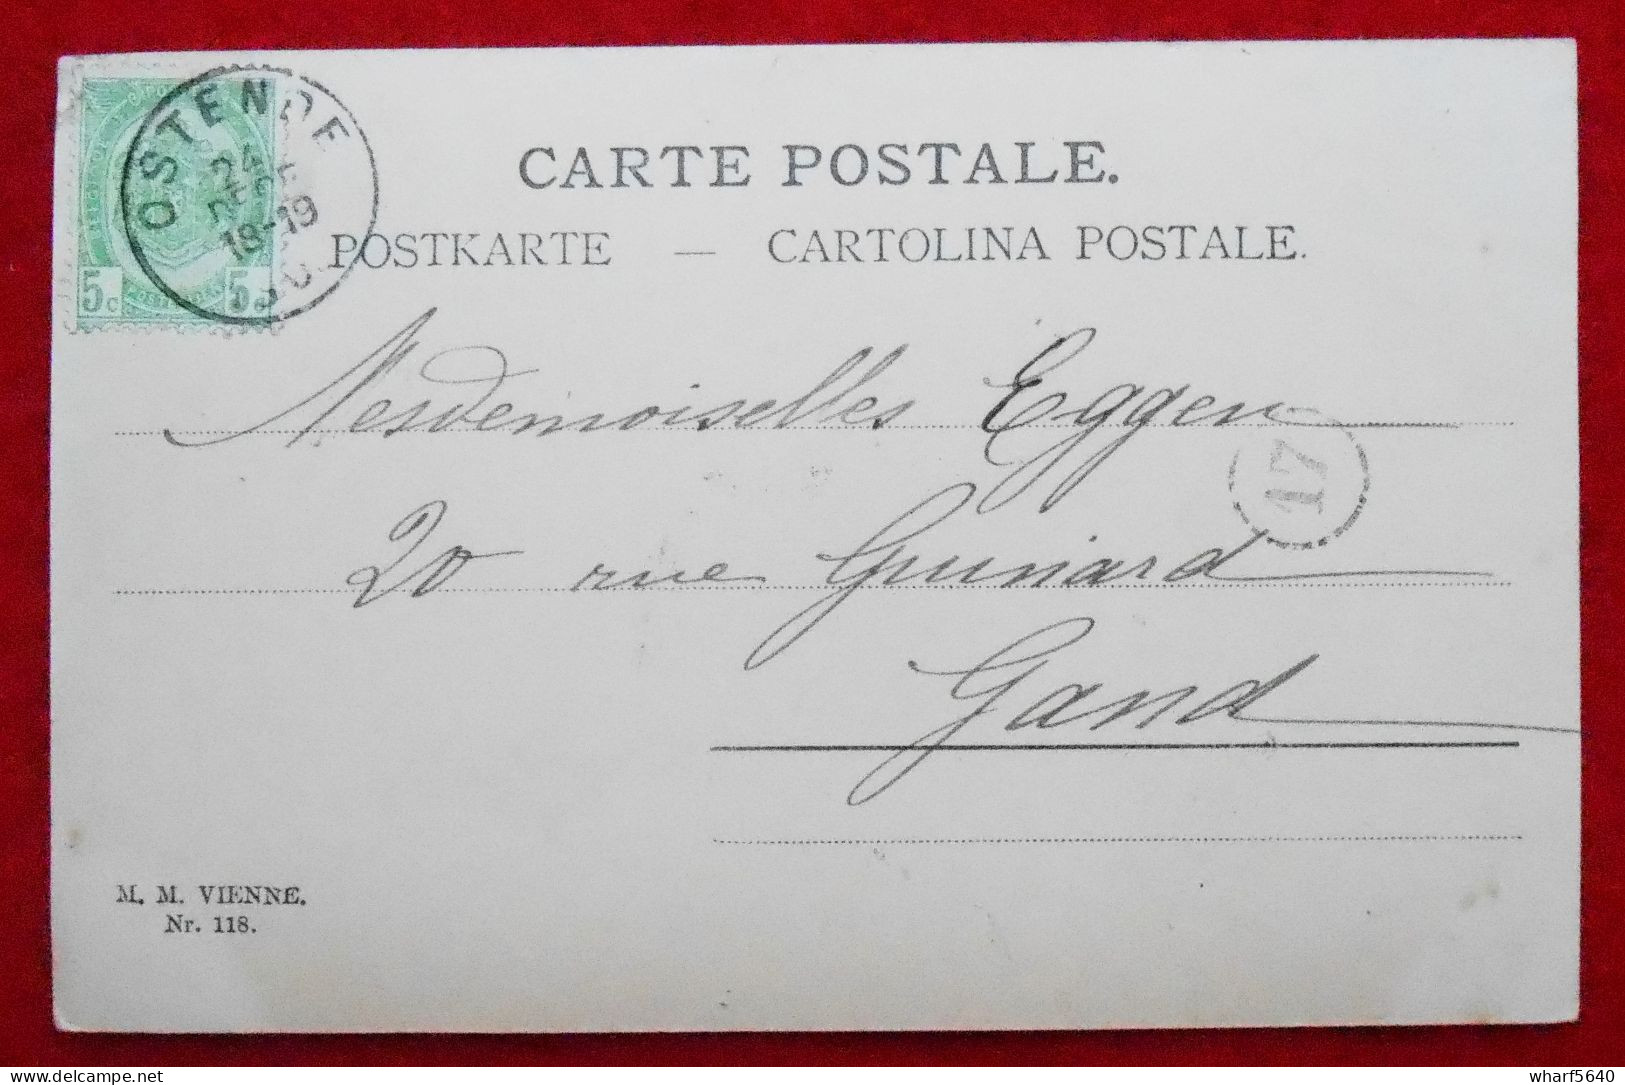 OSTENDE
24
DEC
18-19
5c 5c
CARTE POSTALE.
POSTKARTE — CARTOLINA POSTALE.
Mesdemoiselles Eggen
17
20 rue Guinard
Gand
M. M. VIENNE.
Nr. 118.
wharf5640